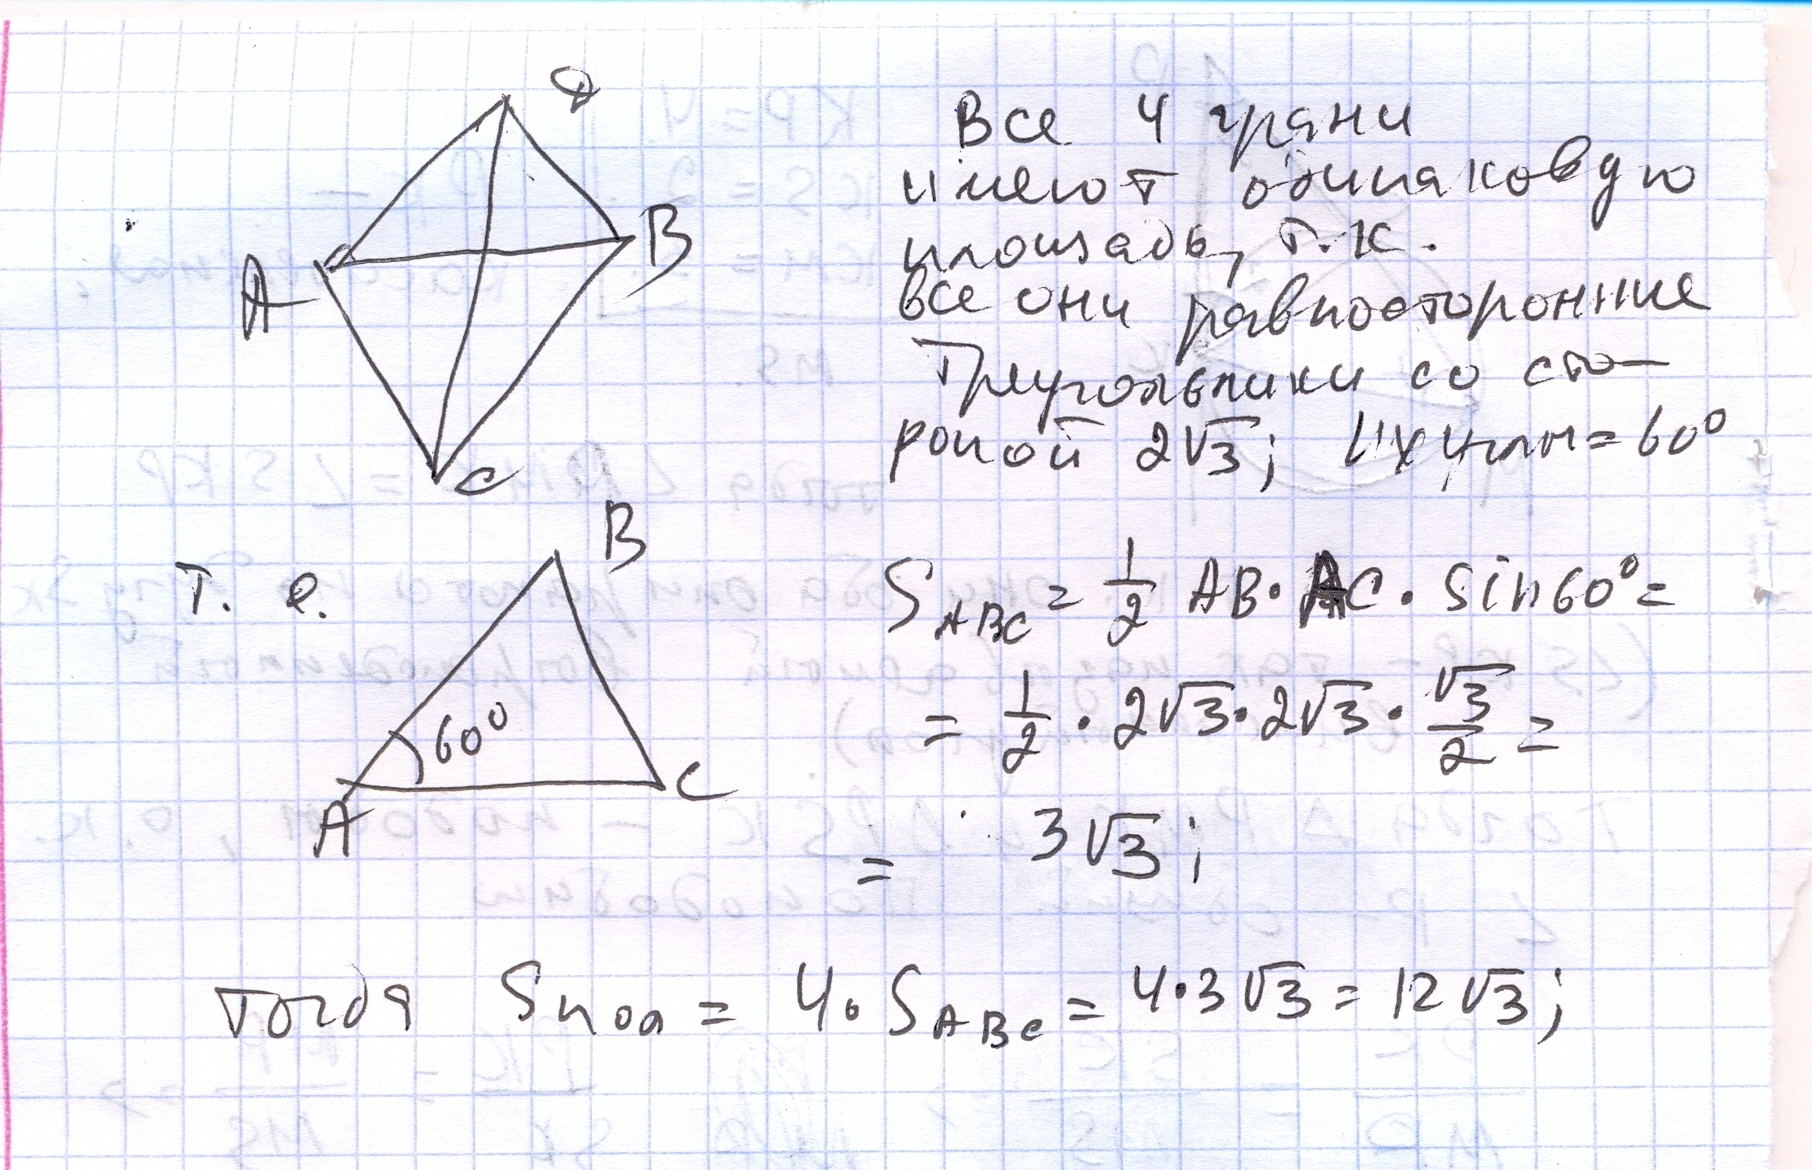 D
A
B
C
Все 4 грани
имеют одинаковую
площадь, т.к.
все они равносторонние
треугольники со сто-
роной 2√3; Их углы = 60°
Т. е.
B
60°
A
C
S_ABC = 1/2 AB · AC · sin60° =
= 1/2 · 2√3 · 2√3 · √3/2 =
= 3√3;
тогда Sпов = 4 · S_ABC = 4·3√3 = 12√3;